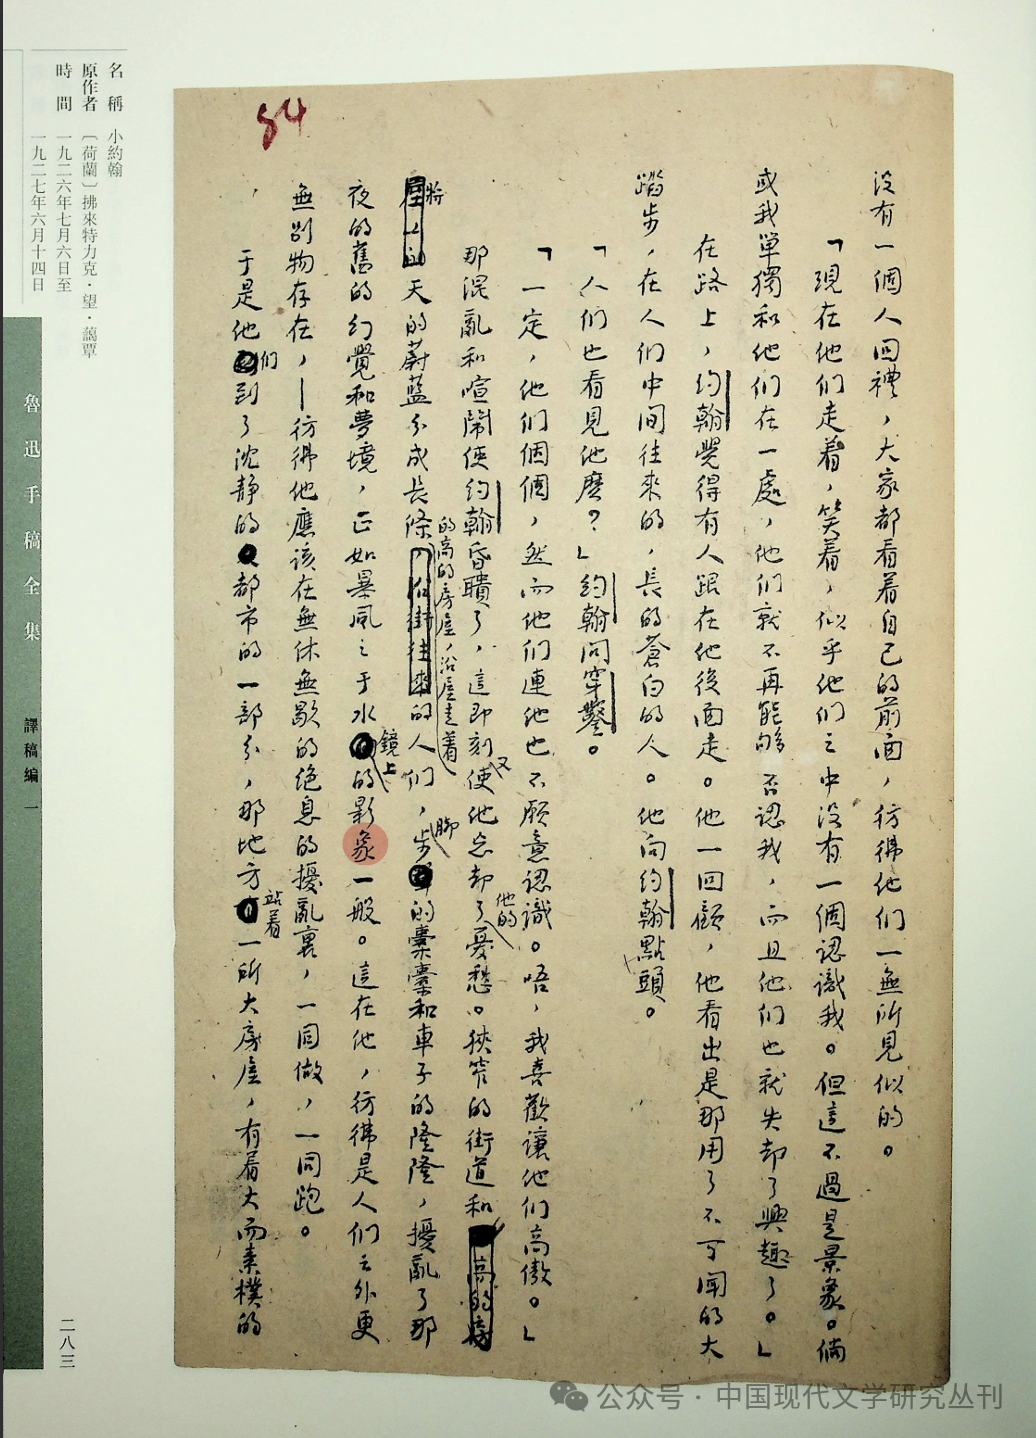 84
没有一個人回禮，大家都看着自己的前面，彷彿他们一無所見似的。
「現在他们走着，笑着，似乎他们之中没有一個認識我。但這不過是景象。倘
或我単獨和他们在一處，他们就不再能够否認我，而且他们也就失却了興趣了。」
在路上，约翰覺得有人跟在他後面走。他一回顧，他看出是那用了不可闻的大
踏步，在人们中间往来的，長的蒼白的人。他向约翰點頭。
「人们也看見他麽？」约翰问穿鑿。
「一定，他们個個，然而他们連他也不願意認識。唔，我喜歡讓他们高傲。」
那混亂和喧鬧使约翰昏聵了，這即刻又使他忘却了他的憂愁。狹窄的街道和
的高的房屋，沿屋走着
將天的蔚藍分成長條
的人们，脚步的橐橐和車子的隆隆，擾亂了那
夜的舊的幻覺和夢境，正如暴風之于水鏡上的影象一般。這在他，彷彿是人们之外更
無别物存在，—彷彿他應該在無休無歇的绝息的擾亂裏，一同做，一同跑。
于是他们到了沈静的都市的一部分，那地方站着一所大房屋，有着大而素樸的
名稱 小約翰
原作者 〔荷蘭〕拂來特力克·望·藹覃
時間 一九二六年七月六日至
一九二七年六月十四日
魯迅手稿全集 譯稿編 一
二八三
公众号·中国现代文学研究丛刊